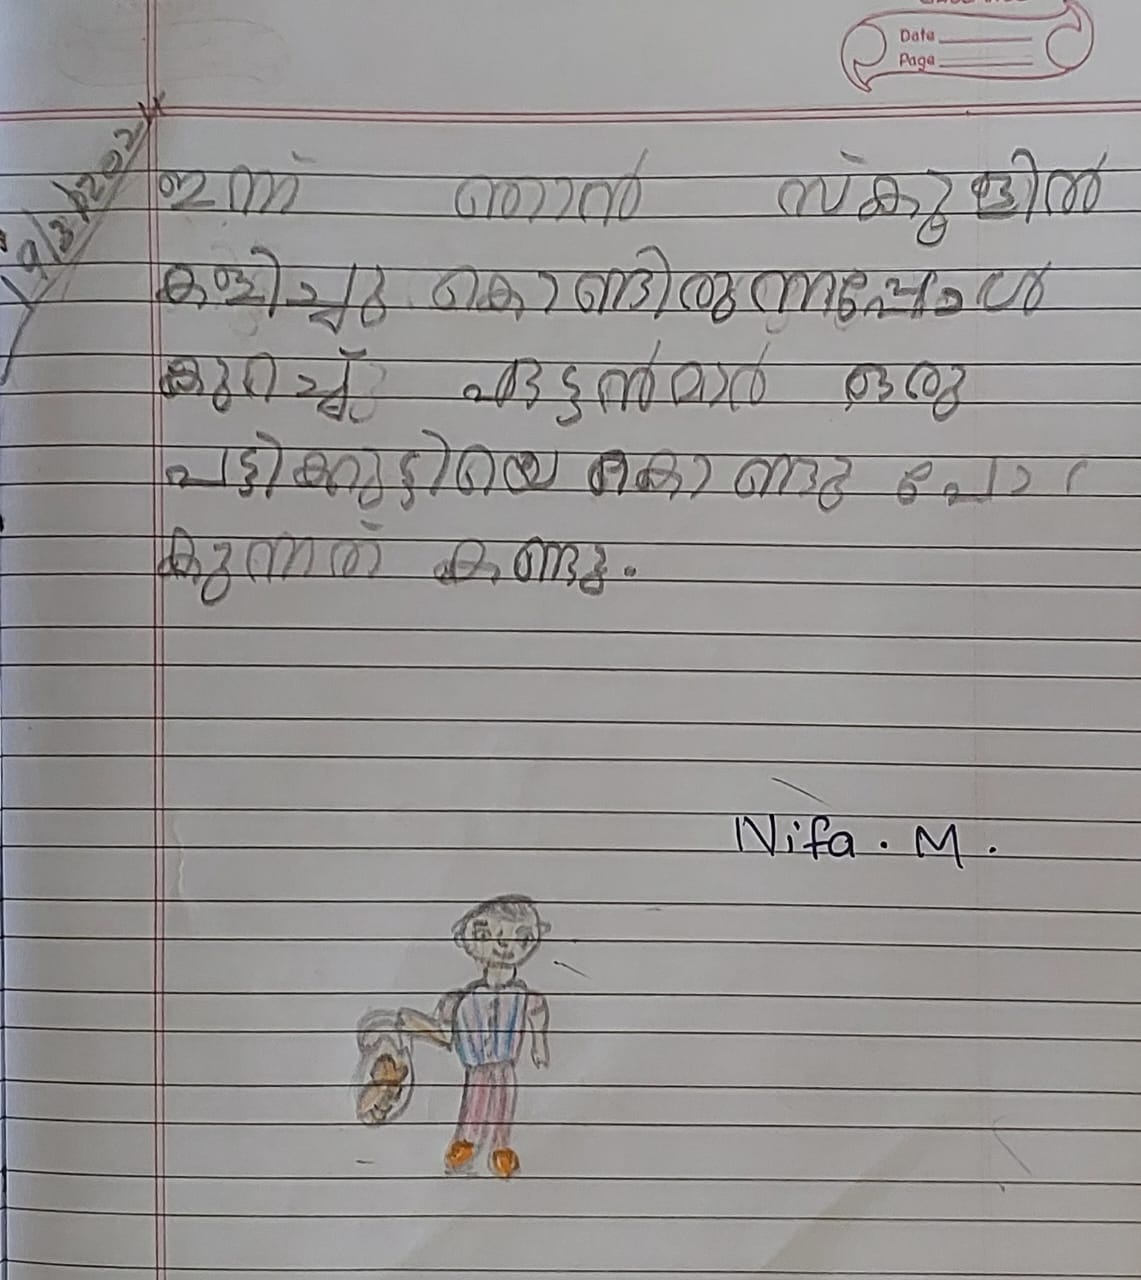 Date
Page
ഇന്ന് ഞാൻ സ്കൂളിൽ
കളിച്ചു കൊണ്ടിരുന്നപ്പോൾ
കുറച്ച് ഏട്ടൻമാൻ ഒരു
പട്ടിക്കുട്ടിയെ കൊണ്ടു പോ
കുന്നത് കണ്ടു.
Nifa . M .